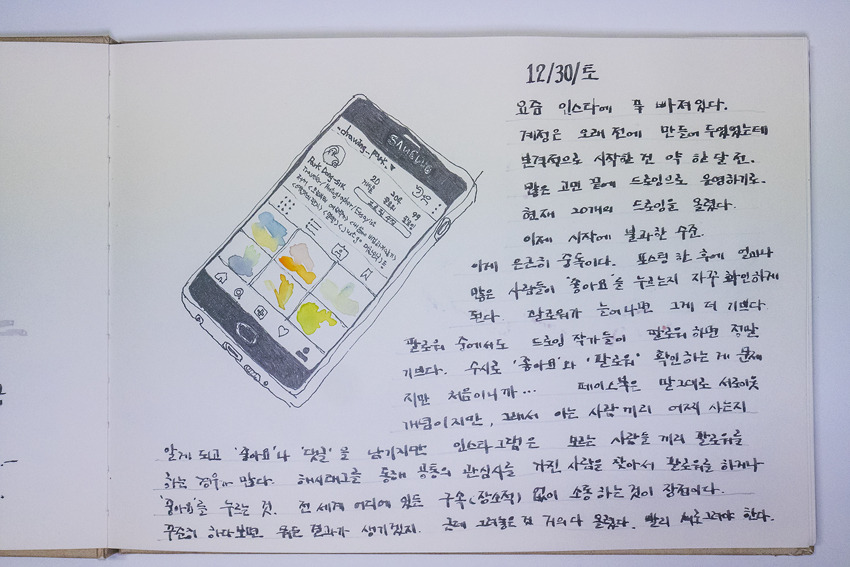 12/30/토
요즘 인스타에 푹 빠져있다.
계정은 오래 전에 만들어 두었었는데
본격적으로 시작한 건 약 한 달 전.
많은 고민 끝에 드로잉으로 운영하기로.
현재 20개의 드로잉을 올렸다.
이제 시작에 불과한 수준.
이게 은근히 중독이다. 포스팅 한 후에 얼마나
많은 사람들이 '좋아요'를 누르는지 자꾸 확인하게
된다. 팔로워가 늘어나면 그게 더 기쁘다.
팔로워 중에서도 드로잉 작가들이 팔로워하면 정말
기쁘다. 수시로 '좋아요'와 '팔로워' 확인하는 게 문제
지만 처음이니까... 페이스북은 말그대로 서로이웃
개념이지만, 그래서 아는 사람끼리 어찌 사는지
알게 되고 '좋아요'나 '댓글'을 남기지만 인스타그램은 모르는 사람들 끼리 팔로워를
하는 경우가 많다. 해시태그를 통해 공통의 관심사를 가진 사람을 찾아서 팔로워를 하거나
'좋아요'를 누르는 것. 전 세계 어디에 있든 구속(장소적) 없이 소통하는 것이 장점이다.
꾸준히 하다보면 뭐든 결과가 생기겠지. 근데 그려놓은 걸 거의 다 올렸다. 빨리 새로 그려야 한다.
SAMSUNG
-drawing_park_
20 206 99
게시물 팔로워 팔로잉
프로필 수정
Park Dong-sik
Traveler/Photographer/Essayist